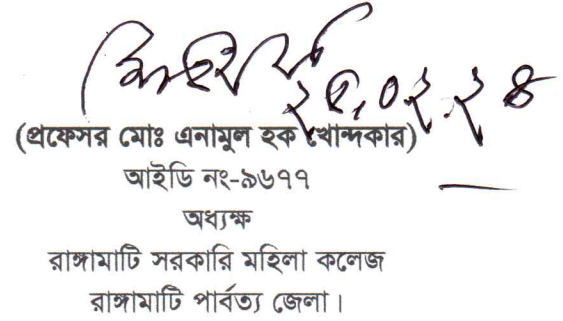 ২৫.০২.২৪
(প্রফেসর মোঃ এনামুল হক খোন্দকার)
আইডি নং-৯৬৭৭
অধ্যক্ষ
রাঙ্গামাটি সরকারি মহিলা কলেজ
রাঙ্গামাটি পার্বত্য জেলা।